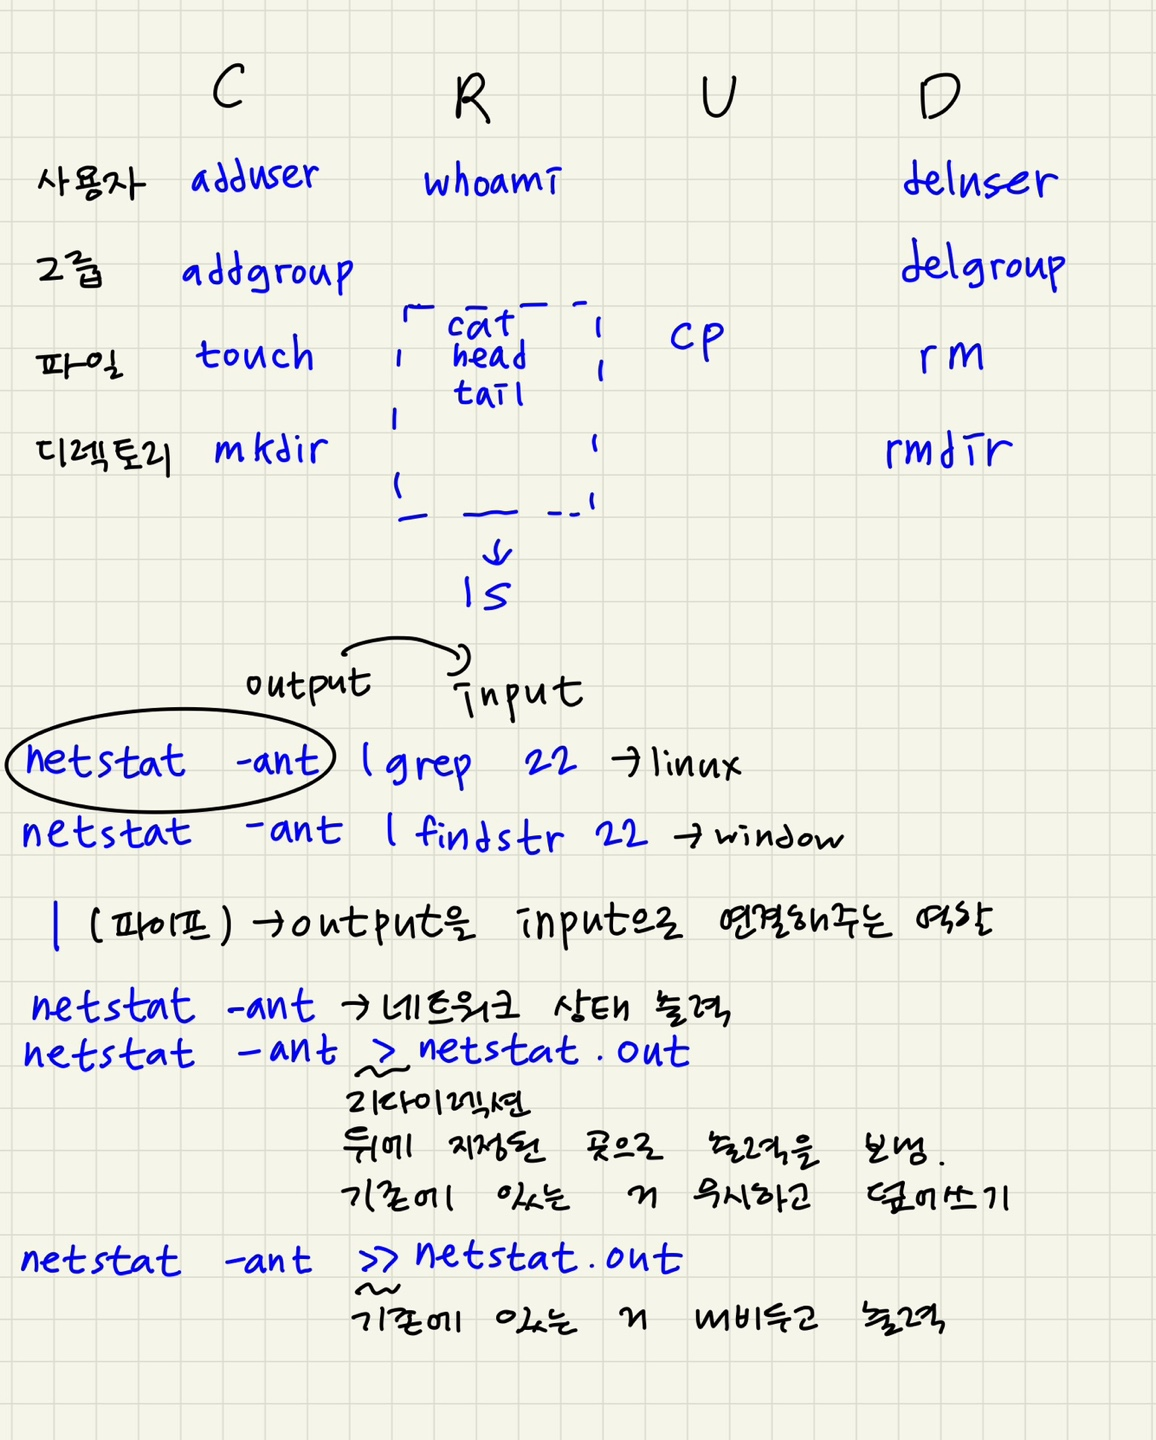 C R U D
사용자 adduser whoami deluser
그룹 addgroup delgroup
cat
파일 touch head cp rm
tail
디렉토리 mkdir rmdir
↓
ls
output input
netstat -ant | grep 22 → linux
netstat -ant | findstr 22 → window
| (파이프) → output을 input으로 연결해주는 역할
netstat -ant → 네트워크 상태 출력
netstat -ant > netstat.out
리다이렉션
뒤에 지정된 곳으로 출력을 보냄.
기존에 있는 거 무시하고 덮어쓰기
netstat -ant >> netstat.out
기존에 있는 거 내비두고 출력